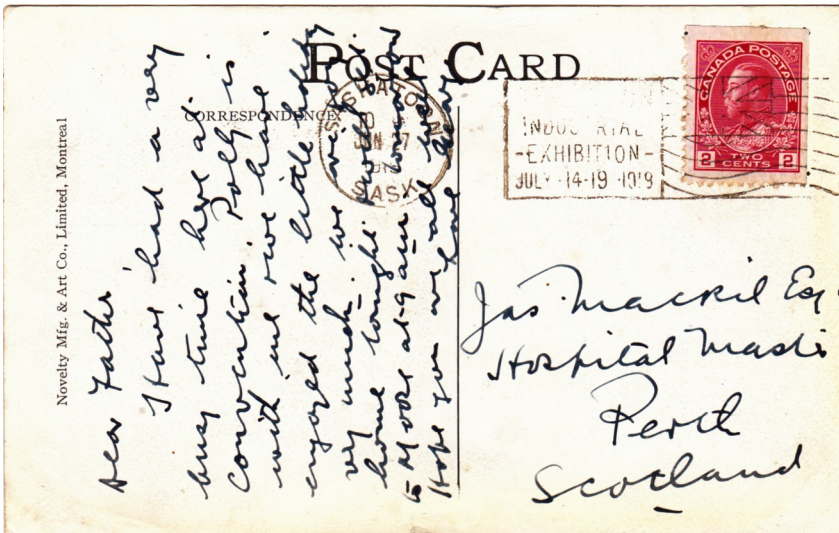 POST CARD
CORRESPONDENCE
Novelty Mfg. & Art Co., Limited, Montreal
SASKATOON
JUN 27
SASK
INDUSTRIAL
-EXHIBITION-
JULY-14-19-1919
CANADA POSTAGE
2 TWO CENTS 2
Dear Father
I have had a very
busy time here at
Convention. Polly is
with me & we have
enjoyed the little holiday
very much - we go
home tonight
to Moose at 9 am tomorrow
Hope you are all well
love
Jas. Mackil Esq
Hospital Master
Perth
Scotland